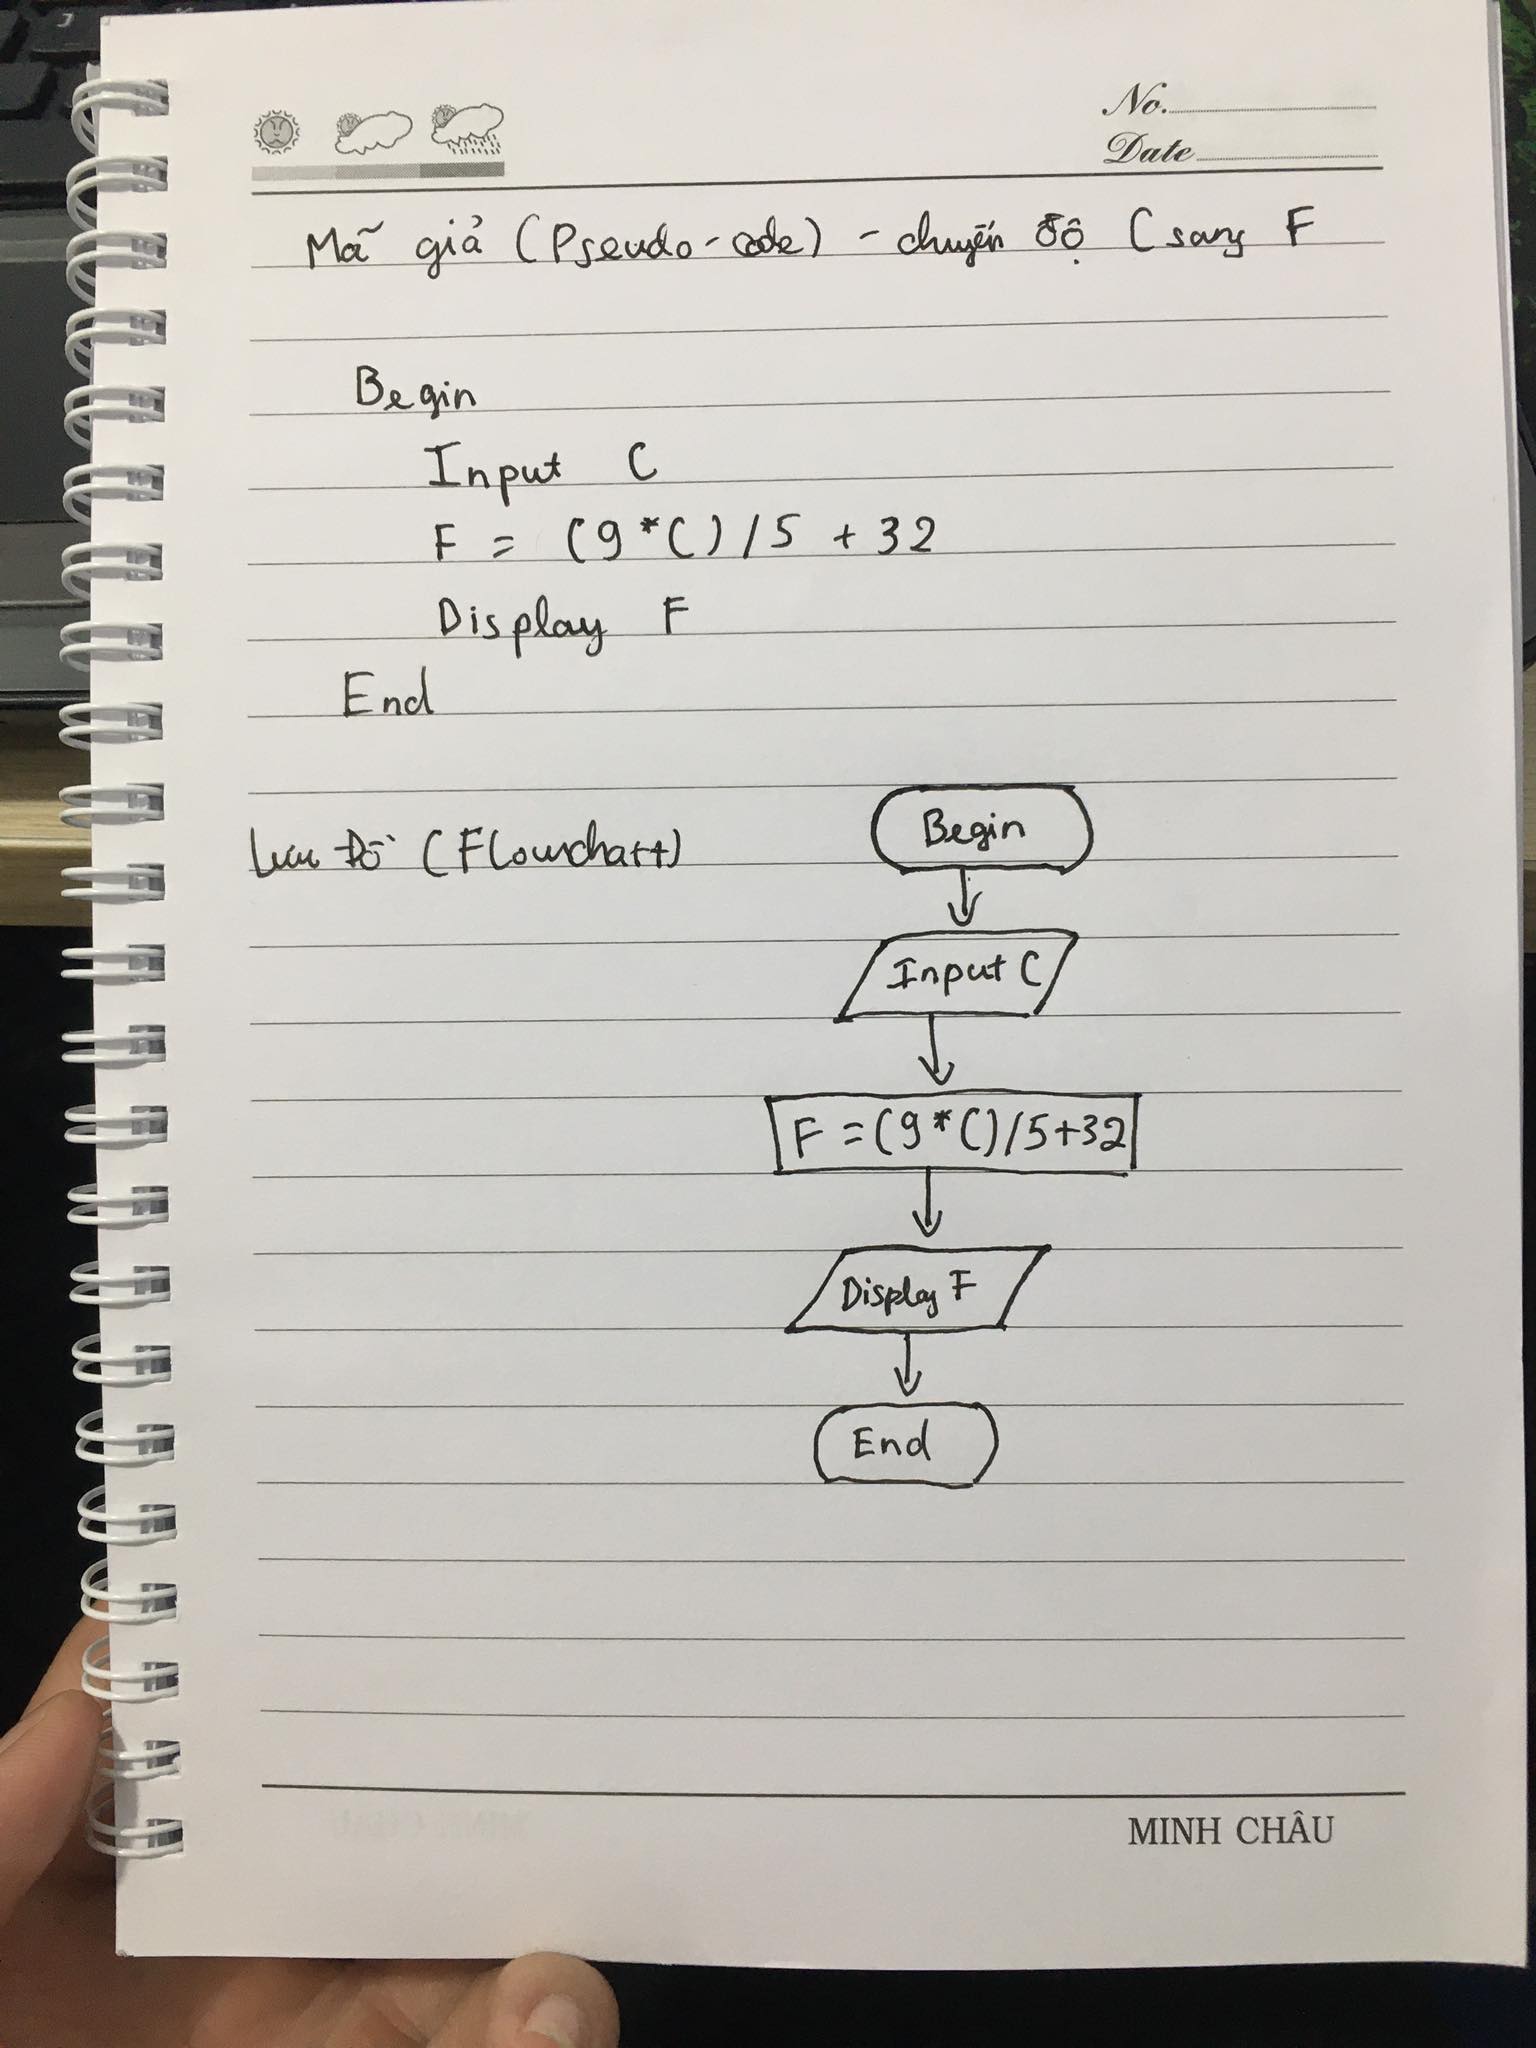 No.
Date
Mã giả (Pseudo-code) - chuyển độ C sang F
Begin
Input C
F = (9*C)/5 + 32
Display F
End
Lưu Đồ (Flowchart)
Begin
Input C
F = (9*C)/5+32
Display F
End
MINH CHÂU